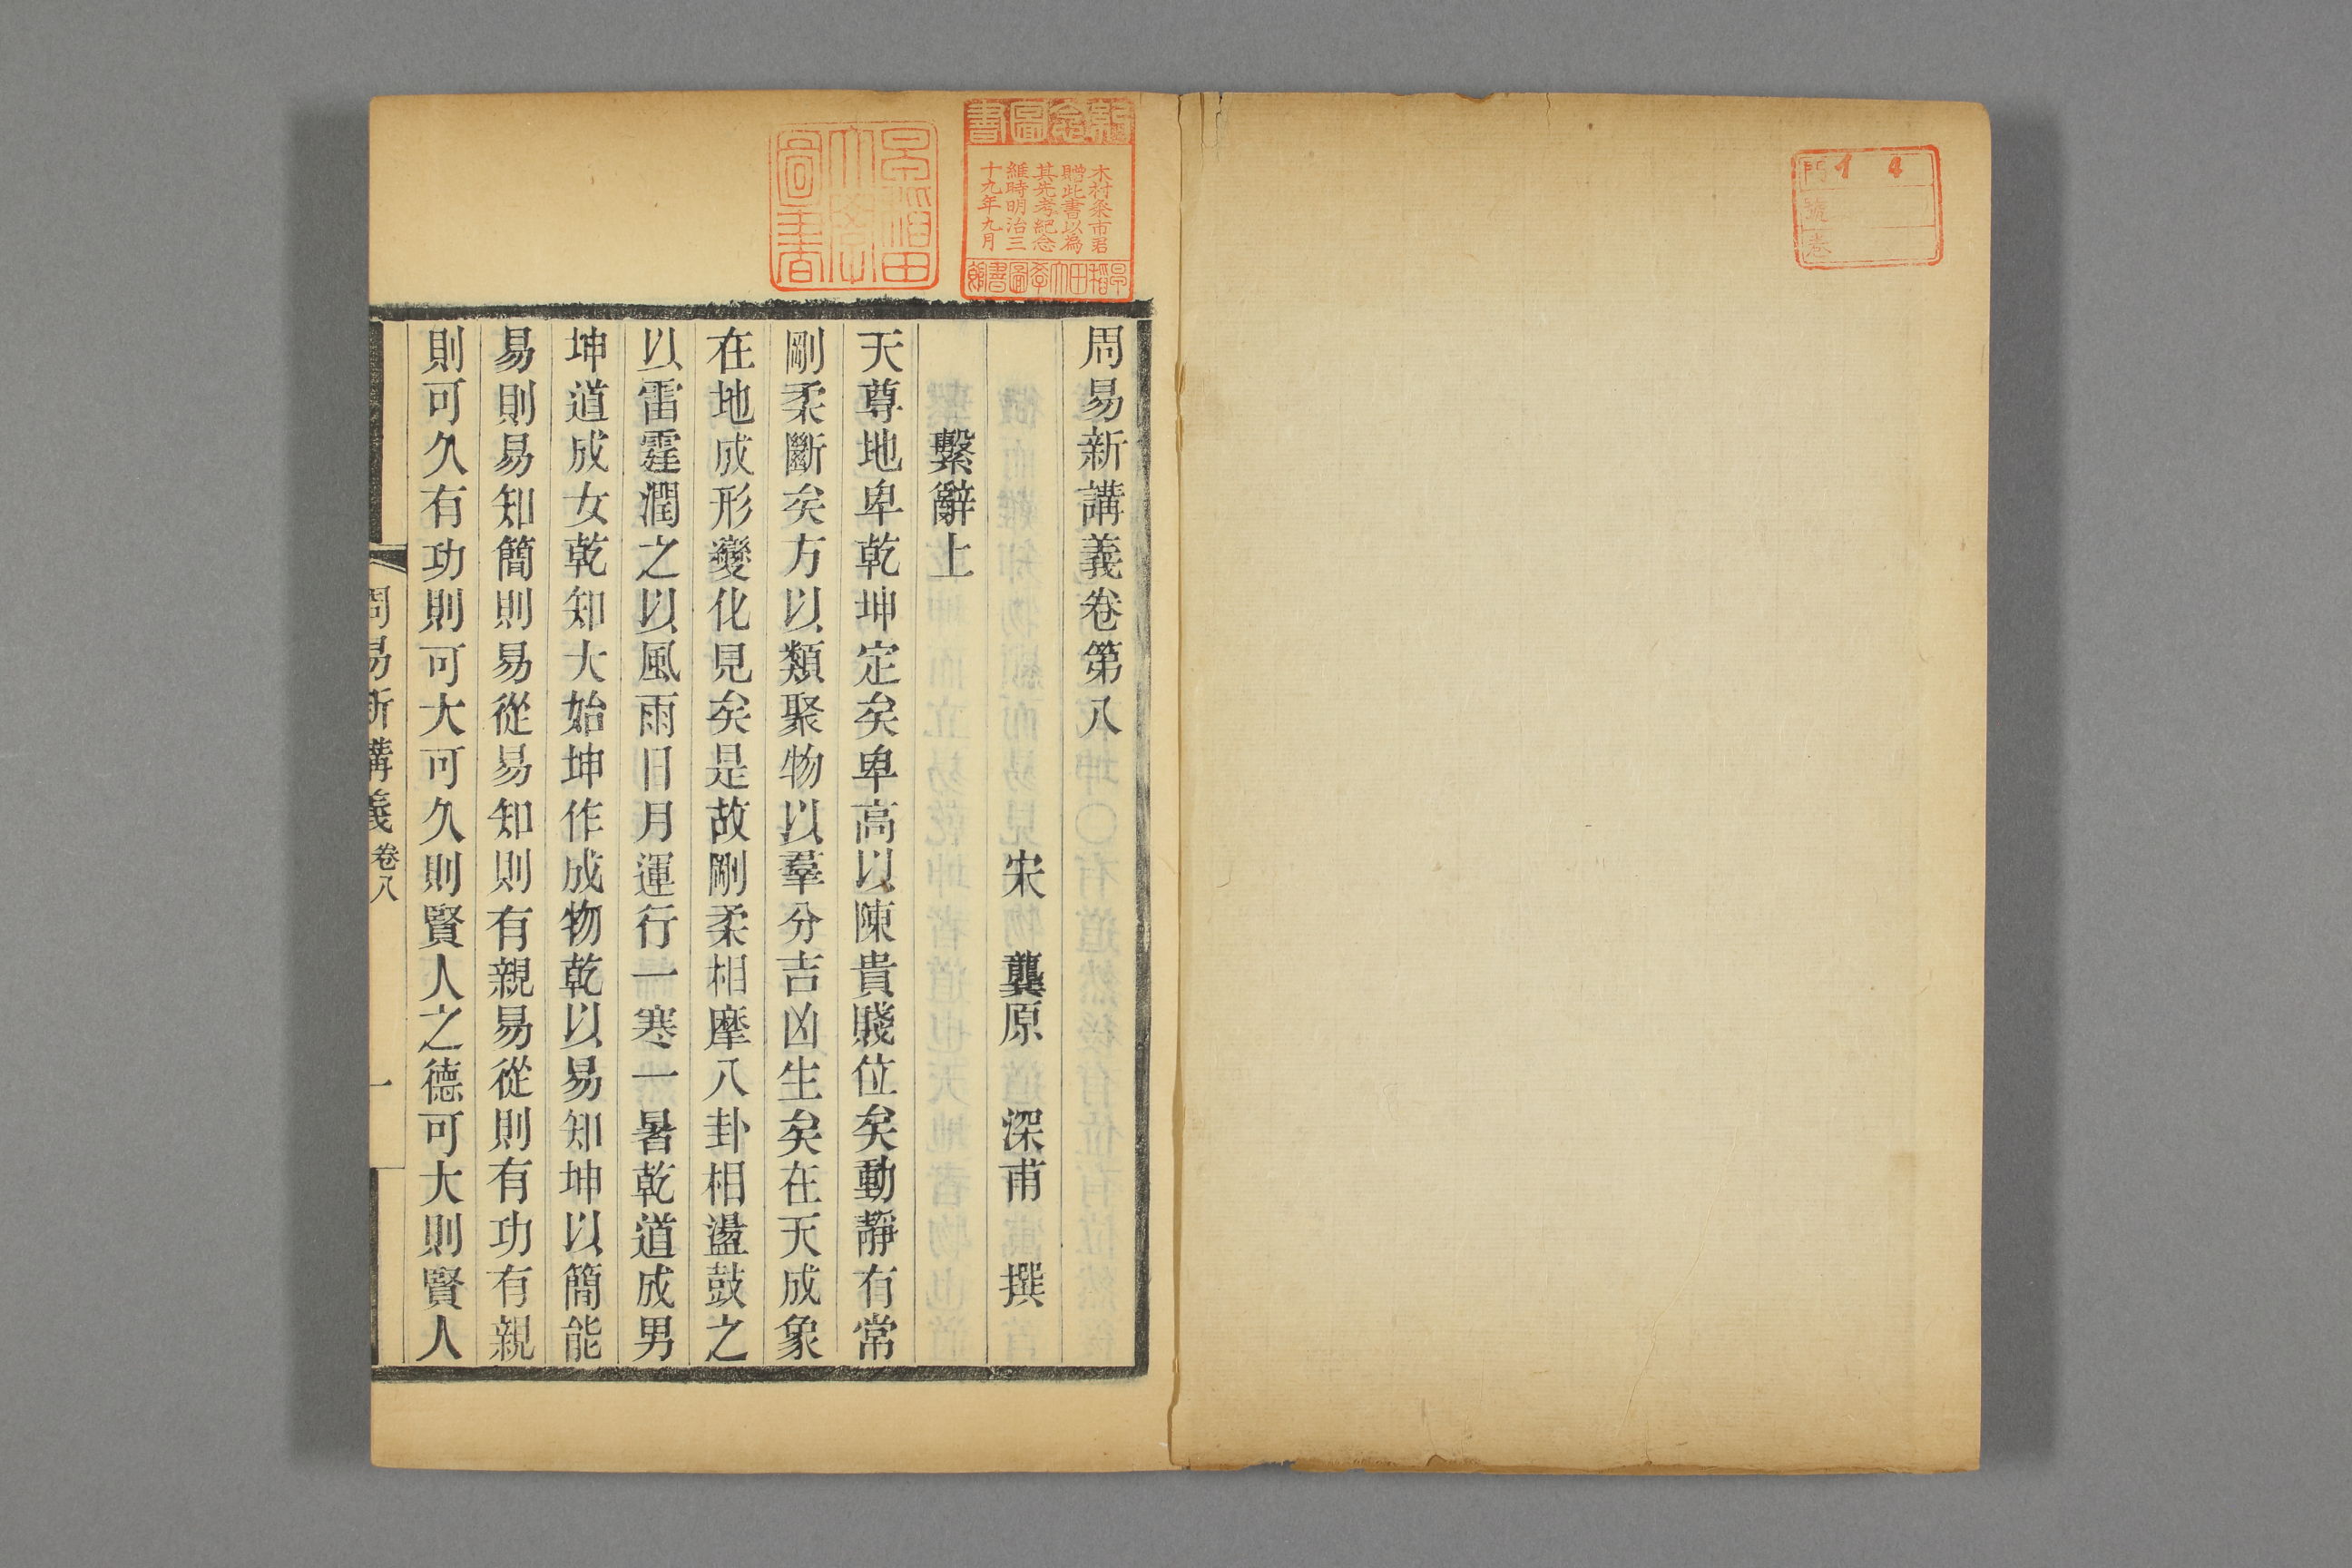 門 1 4
號
卷
紀念圖書
木村粂市君
贈此書以為
其先考紀念
維時明治三
十九年九月
早稻田大學圖書館
早稻田大學圖書
周易新講義卷第八
宋 龔原 深甫 撰
繫辭上
天尊地卑乾坤定矣卑高以陳貴賤位矣動靜有常
剛柔斷矣方以類聚物以羣分吉凶生矣在天成象
在地成形變化見矣是故剛柔相摩八卦相盪鼓之
以雷霆潤之以風雨日月運行一寒一暑乾道成男
坤道成女乾知大始坤作成物乾以易知坤以簡能
易則易知簡則易從易知則有親易從則有功有親
則可久有功則可大可久則賢人之德可大則賢人
周易新講義 卷八 一